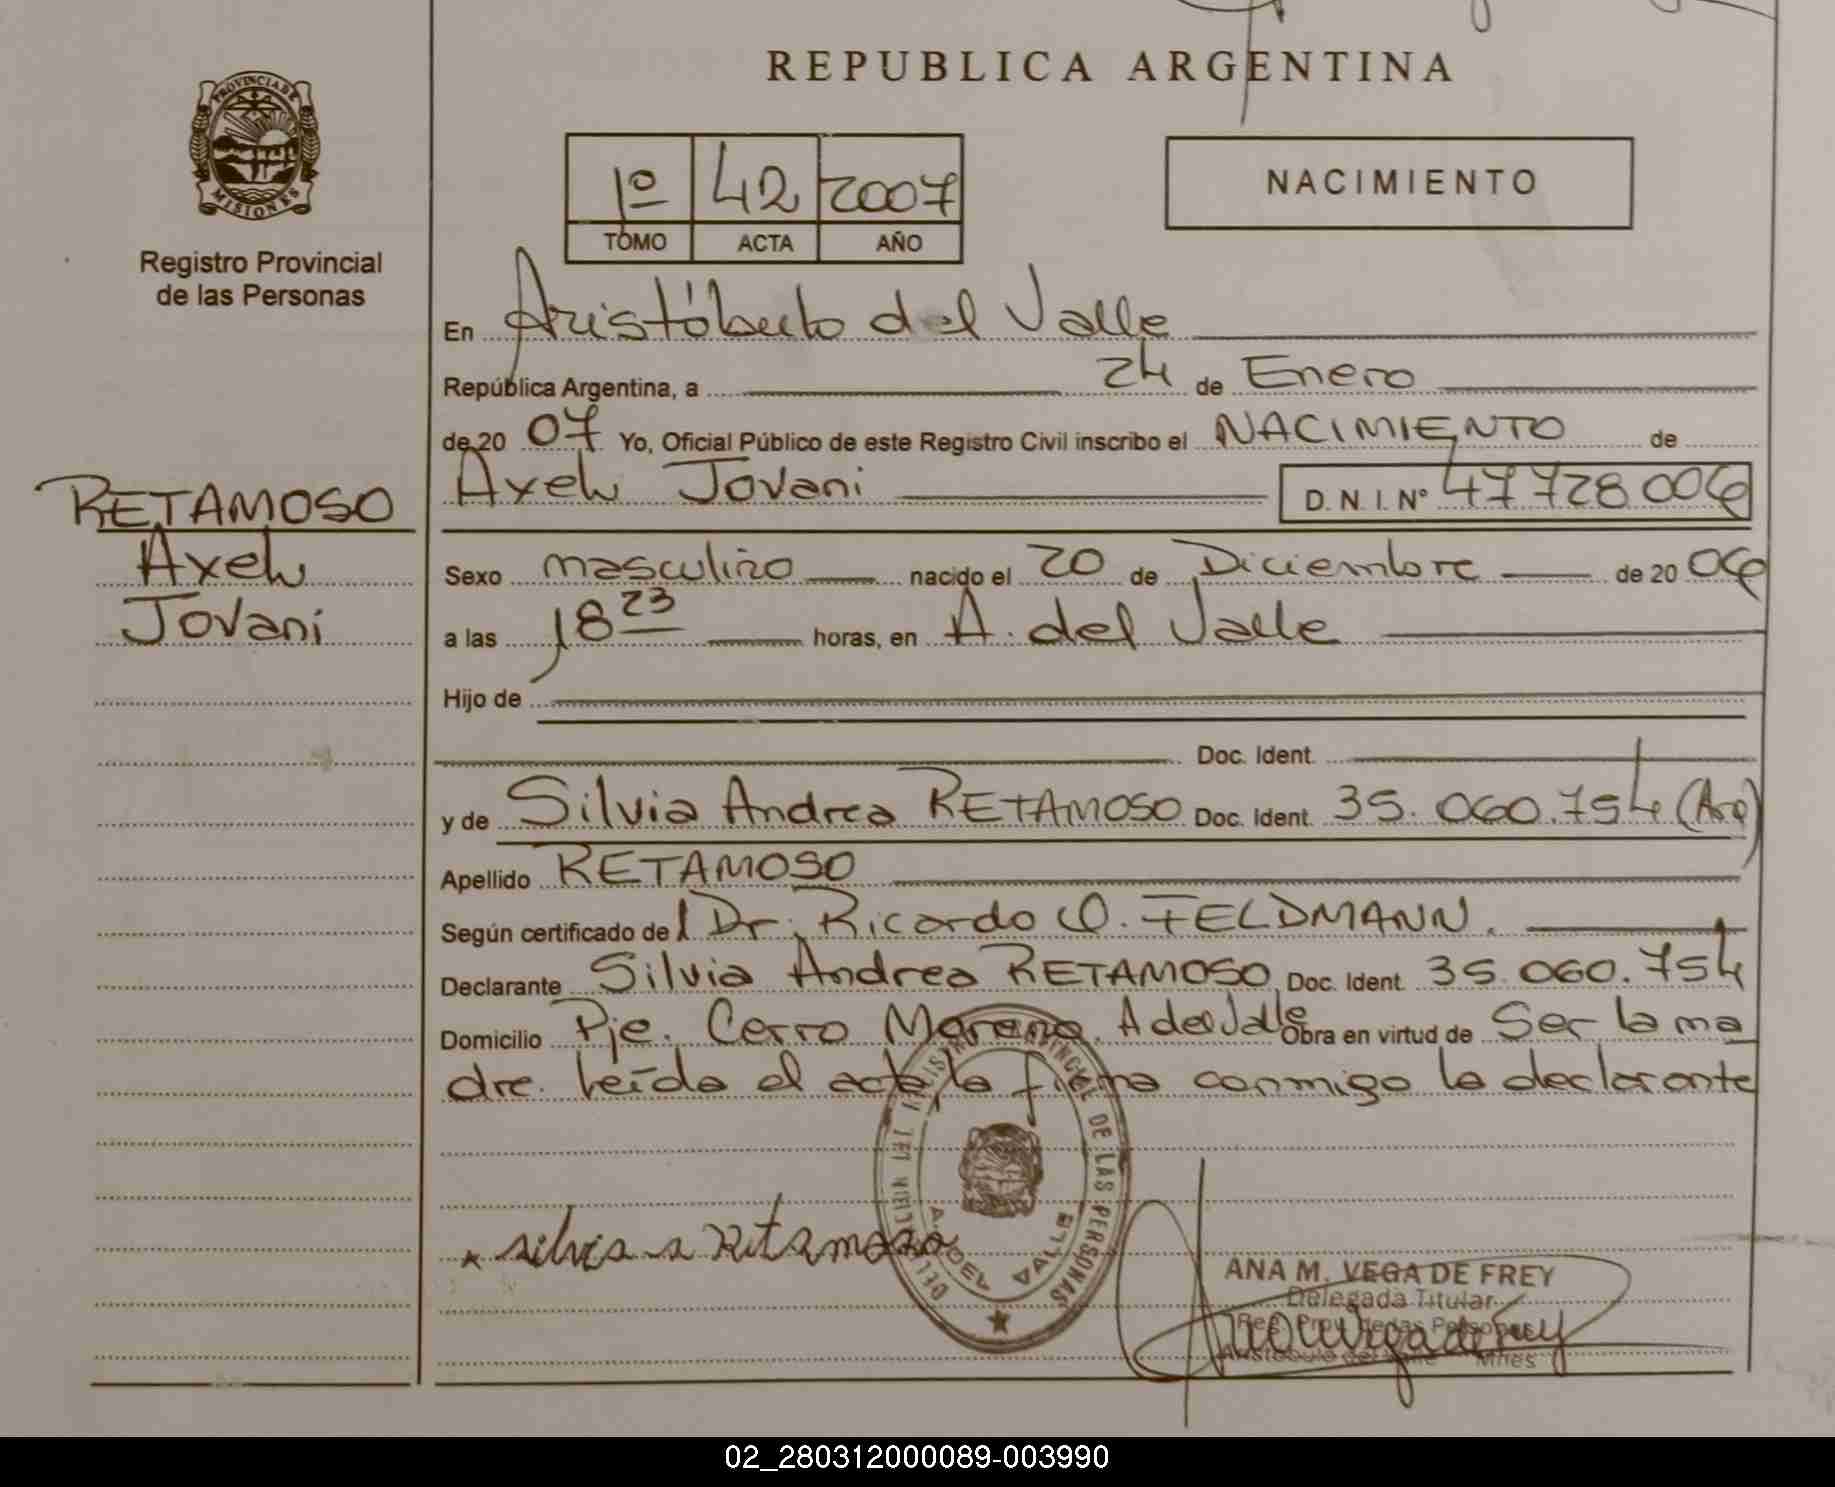 REPUBLICA ARGENTINA
PROVINCIA DE
MISIONES
Registro Provincial
de las Personas
1º 42 2007
TOMO ACTA AÑO
NACIMIENTO
En Aristóbulo del Valle
República Argentina, a 24 de Enero
de 20 07 Yo, Oficial Público de este Registro Civil inscribo el NACIMIENTO de
Axel Jovani D.N.I. Nº 47728006
RETAMOSO
Axel
Jovani
Sexo masculino nacido el 20 de Diciembre de 20 06
a las 18 23 horas, en A. del Valle
Hijo de
Doc. Ident.
y de Silvia Andrea RETAMOSO Doc. Ident. 35.060.754 (Arg)
Apellido RETAMOSO
Según certificado del Dr. Ricardo O. FELDMANN.
Declarante Silvia Andrea RETAMOSO Doc. Ident. 35.060.754
Domicilio Pje. Cerro Moreno. A del Valle Obra en virtud de Ser la ma
dre. Leída el acta, la firma conmigo la declarante
REGISTRO PROVINCIAL DE LAS PERSONAS
A. DEL VALLE
silvia a Retamoso
ANA M. VEGA DE FREY
Delegada Titular
Reg. Prov. de las Personas
Aristóbulo del Valle Mnes
02_280312000089-003990